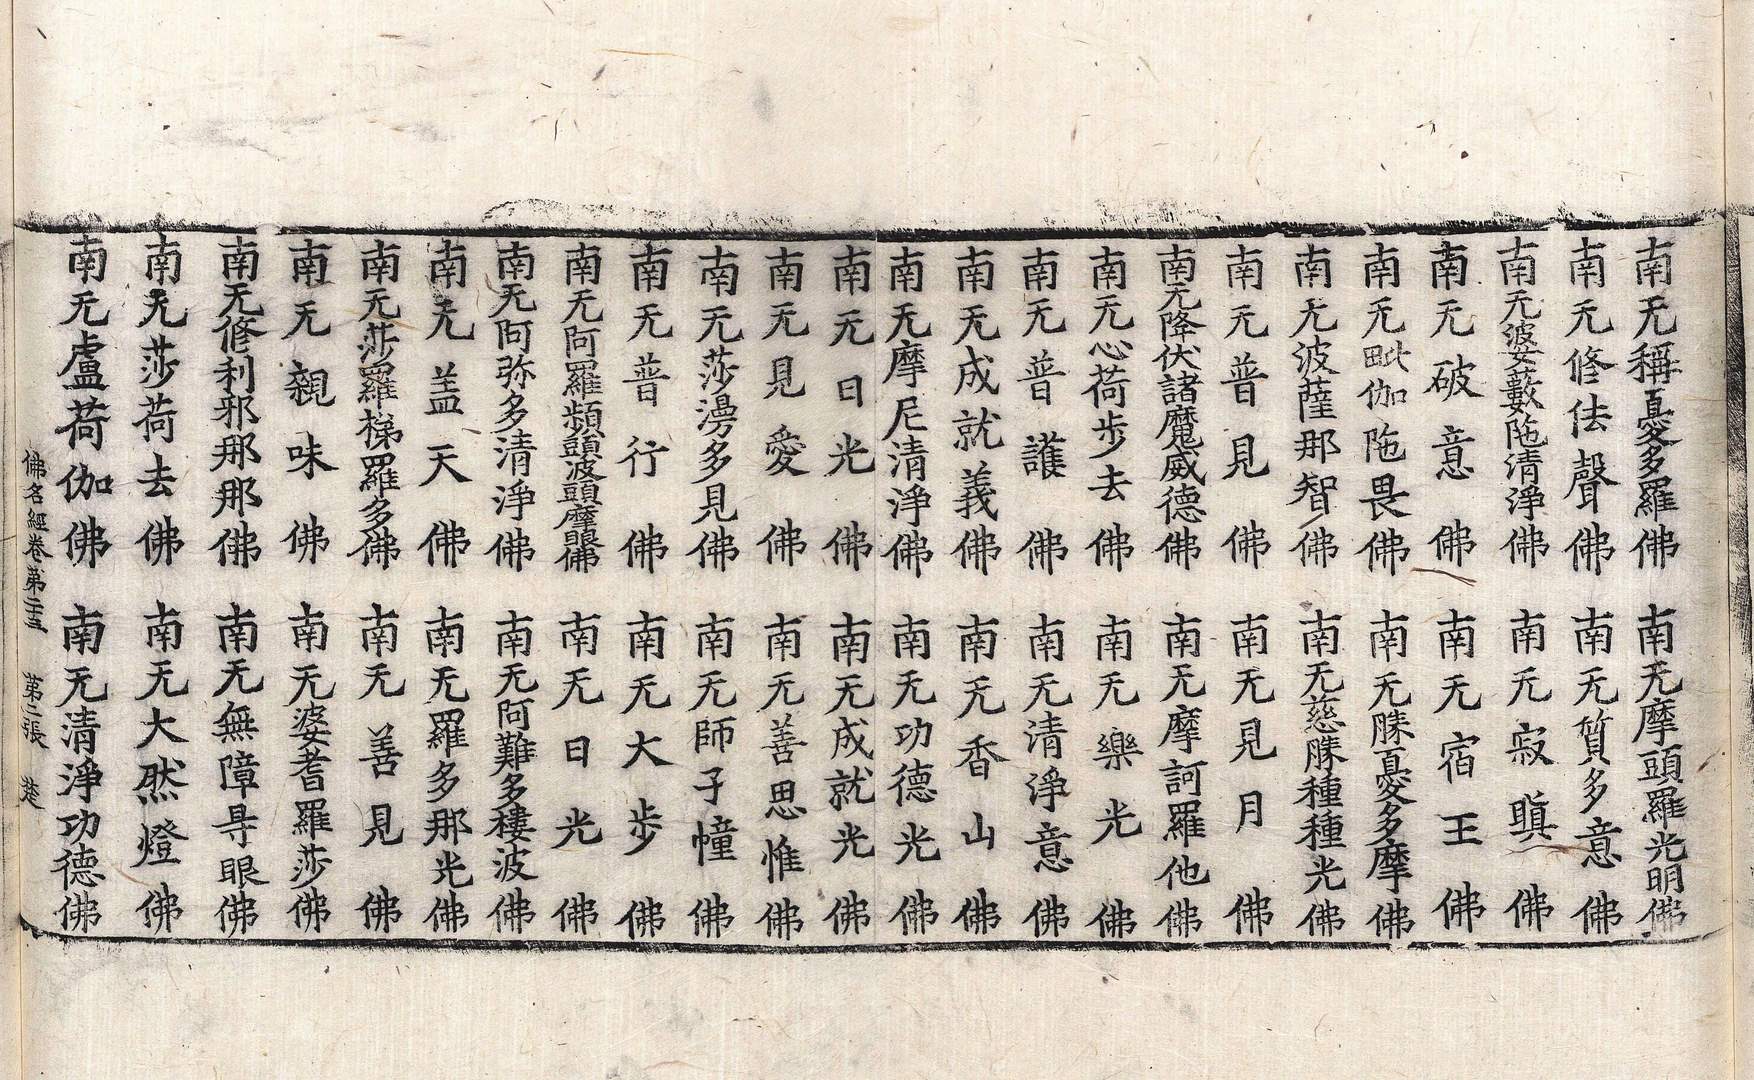 南无稱憂多羅佛　南无摩頭羅光明佛
南无修佉聲佛　南无質多意佛
南无婆藪陁清淨佛　南无寂瞋佛
南无破意佛　南无宿王佛
南无毗伽陁畏佛　南无勝憂多摩佛
南无波薩那智佛　南无慈勝種種光佛
南无普見佛　南无見月佛
南无降伏諸魔威德佛　南无摩訶羅他佛
南无心荷步去佛　南无樂光佛
南无普護佛　南无清淨意佛
南无成就義佛　南无香山佛
南无摩尼清淨佛　南无功德光佛
南无日光佛　南无成就光佛
南无見愛佛　南无善思惟佛
南无莎漫多見佛　南无師子幢佛
南无普行佛　南无大步佛
南无阿羅頻頭波頭摩眼佛　南无日光佛
南无阿弥多清淨佛　南无阿難多樓波佛
南无盖天佛　南无羅多那光佛
南无莎羅梯羅多佛　南无善見佛
南无親味佛　南无婆耆羅莎佛
南无修利邪那那佛　南无無障㝵眼佛
南无莎荷去佛　南无大然燈佛
南无盧荷伽佛　南无清淨功德佛
佛名經卷第二十五　第二張　楚